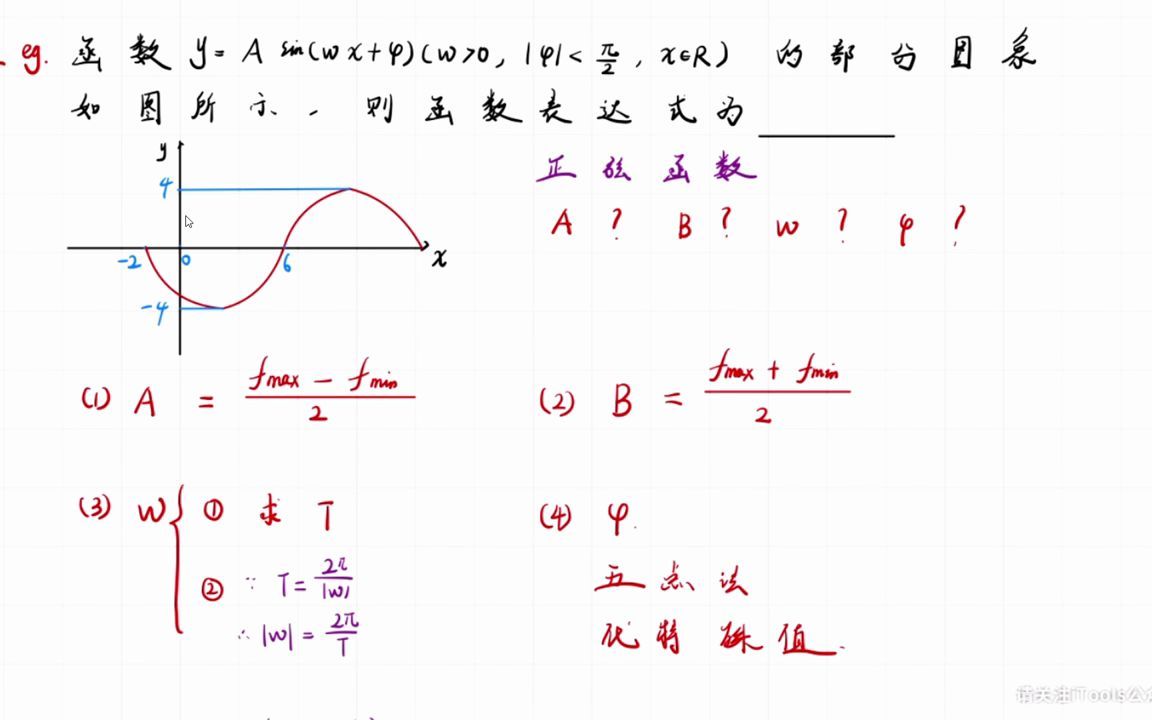 eg. 函数 y = A sin(wx+φ)(w>0, |φ|<π/2, x∈R) 的部分图象
如图所示, 则函数表达式为______
y
4
-2 0 6 x
-4
正弦函数
A ? B ? w ? φ ?
(1) A = (fmax - fmin)/2
(2) B = (fmax + fmin)/2
(3) w { ① 求 T
② ∵ T = 2π/|w|
∴ |w| = 2π/T
(4) φ.
五点法
代特殊值.
请关注iTools公